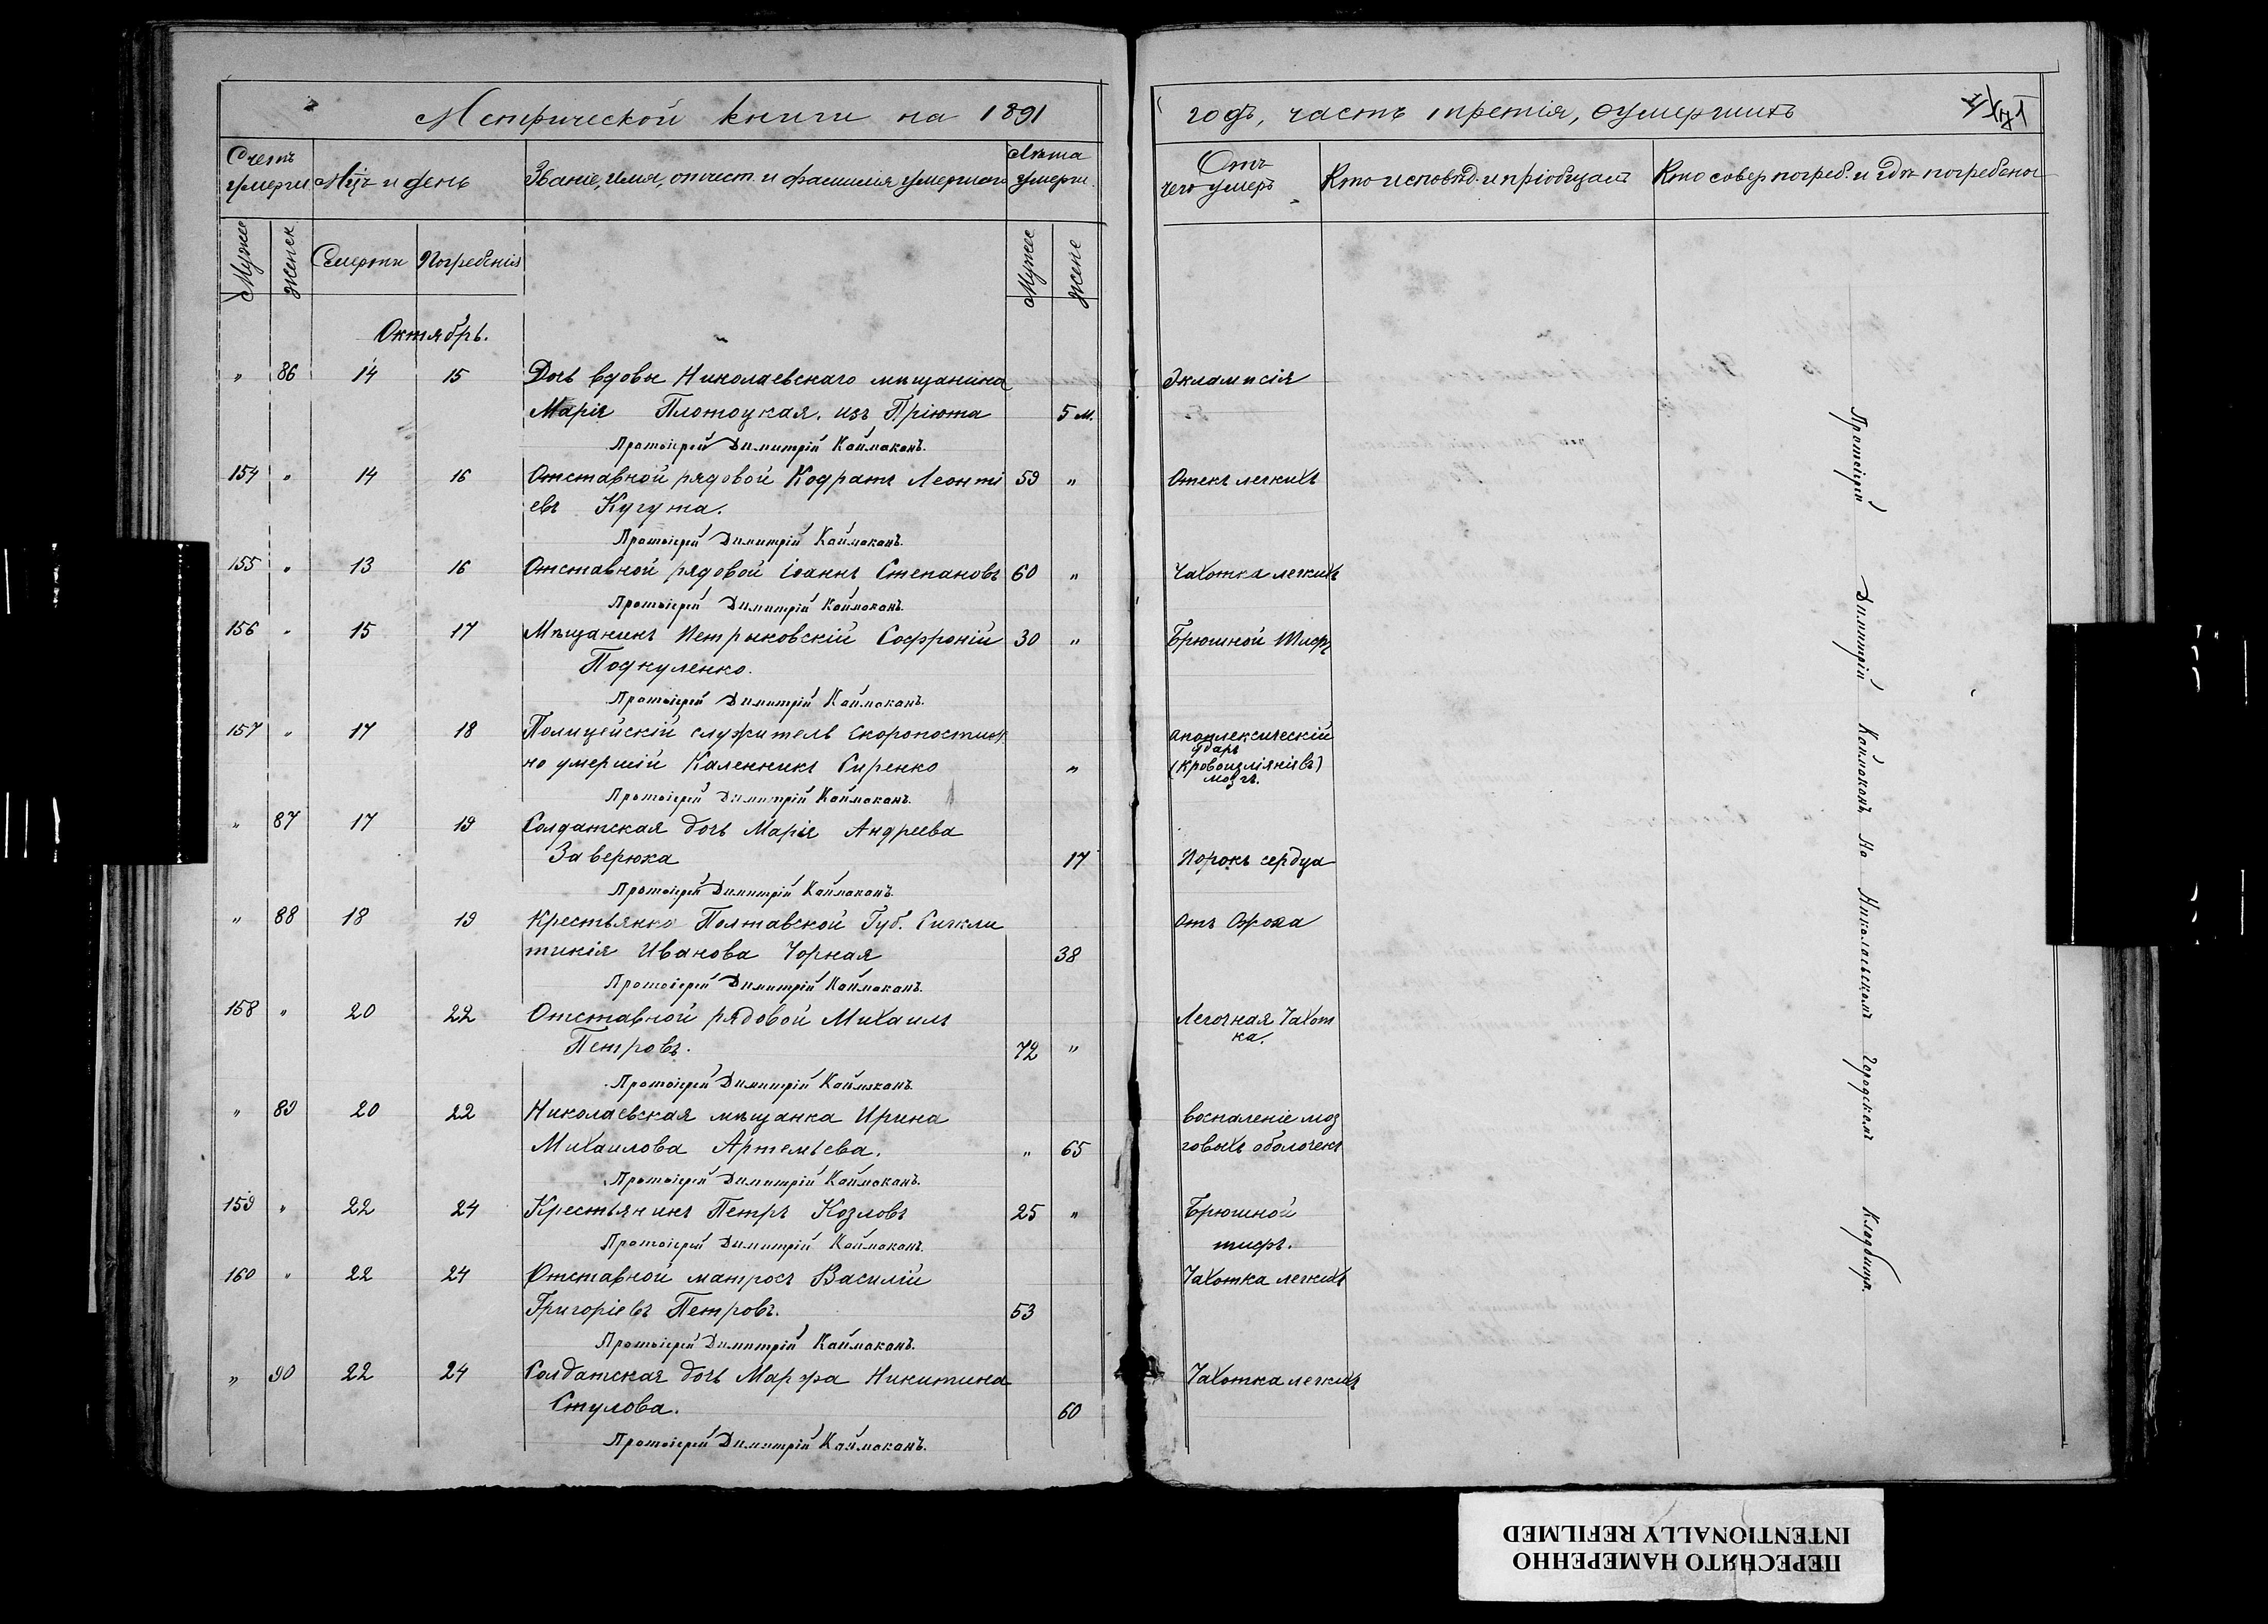 Метрической книги на 1891
годъ, часть третія, о умершихъ
Счетъ умерш.
Мцъ и день
Званіе, имя, отчест. и фамилія умершаго
Лѣта умерш.
Отъ чего умеръ
Кто исповѣд. и пріобщалъ
Кто совер погреб. и гдѣ погребены
Мужес
Женск
Смерти
Погребенія
Мужес
Женс
Октябрь.
" 86 14 15 Дочь вдовы Николаевскаго мѣщанина Эклампсія
Марія Плотоцкая. изъ Пріюта 5 м.
Протоіерей Димитрій Каймаканъ.
154 " 14 16 Отставной рядовой Кодратъ Леонті 59 " Отекъ легкихъ
евъ Кугута.
Протоіерей Димитрій Каймаканъ.
155 " 13 16 Отставной рядовой Іоаннъ Степановъ 60 " Чахотка легкихъ
Протоіерей Димитрій Каймаканъ.
156 " 15 17 Мѣщанинъ Петрыковскій Софроній 30 " Брюшной Тифъ
Поднуленко.
Протоіерей Димитрій Каймаканъ.
157 " 17 18 Полицейскій служитель скоропостиж апоплексическій
ударъ
но умершій Каленникъ Сиренко " (кровоизліяніе въ)
мозгъ.
Протоіерей Димитрій Каймаканъ.
" 87 17 19 Солдатская дочь Марія Андреева
Заверюха 17 Порокъ сердца
Протоіерей Димитрій Каймаканъ.
" 88 18 19 Крестьянка Полтавской Губ. Сигкли отъ Ожога
тикія Иванова Чорная 38
Протоіерей Димитрій Каймаканъ.
158 " 20 22 Отставной рядовой Михаилъ Легочная Чахот
ка.
Петровъ. 72 "
Протоіерей Димитрій Каймаканъ.
" 89 20 22 Николаевская мѣщанка Ирина воспаленіе моз
Михаилова Артемьева. " 65 говыхъ оболочекъ
Протоіерей Димитрій Каймаканъ.
159 " 22 24 Крестьянинъ Петръ Козловъ 25 " Брюшной
Протоіерей Димитрій Каймаканъ. тифъ.
160 " 22 24 Отставной матросъ Василій Чахотка легкихъ
Григоріевъ Петровъ. 53
Протоіерей Димитрій Каймаканъ.
" 90 22 24 Солдатская дочь Марфа Никитина Чахотка легкихъ
Стулова. 60
Протоіерей Димитрій Каймаканъ.
Протоіерей Димитрій Каймаканъ На Николаевскомъ Городскомъ Кладбищѣ.
ПЕРЕСНЯТО НАМЕРЕННО
INTENTIONALLY REFILMED